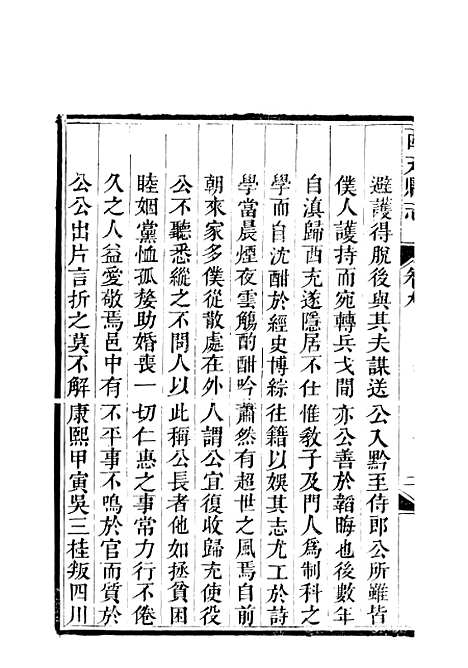 酉充縣志
卷九
二
避護得脫後與其夫謀送公入黔至侍郎公所雖皆
僕人護持而宛轉兵戈間亦公善於韜晦也後數年
自滇歸酉充遂隱居不仕惟敎子及門人爲制科之
學而自沈酣於經史博綜往籍以娛其志尤工於詩
學當晨煙夜雲觴酌酣吟蕭然有超世之風焉自前
朝來家多僕從散處在外人謂公宜復收歸充使役
公不聽悉縱之不問人以此稱公長者他如拯貧困
睦姻黨恤孤嫠助婚喪一切仁惠之事常力行不倦
久之人益愛敬焉邑中有不平事不鳴於官而質於
公公出片言折之莫不解康熙甲寅吳三桂叛四川